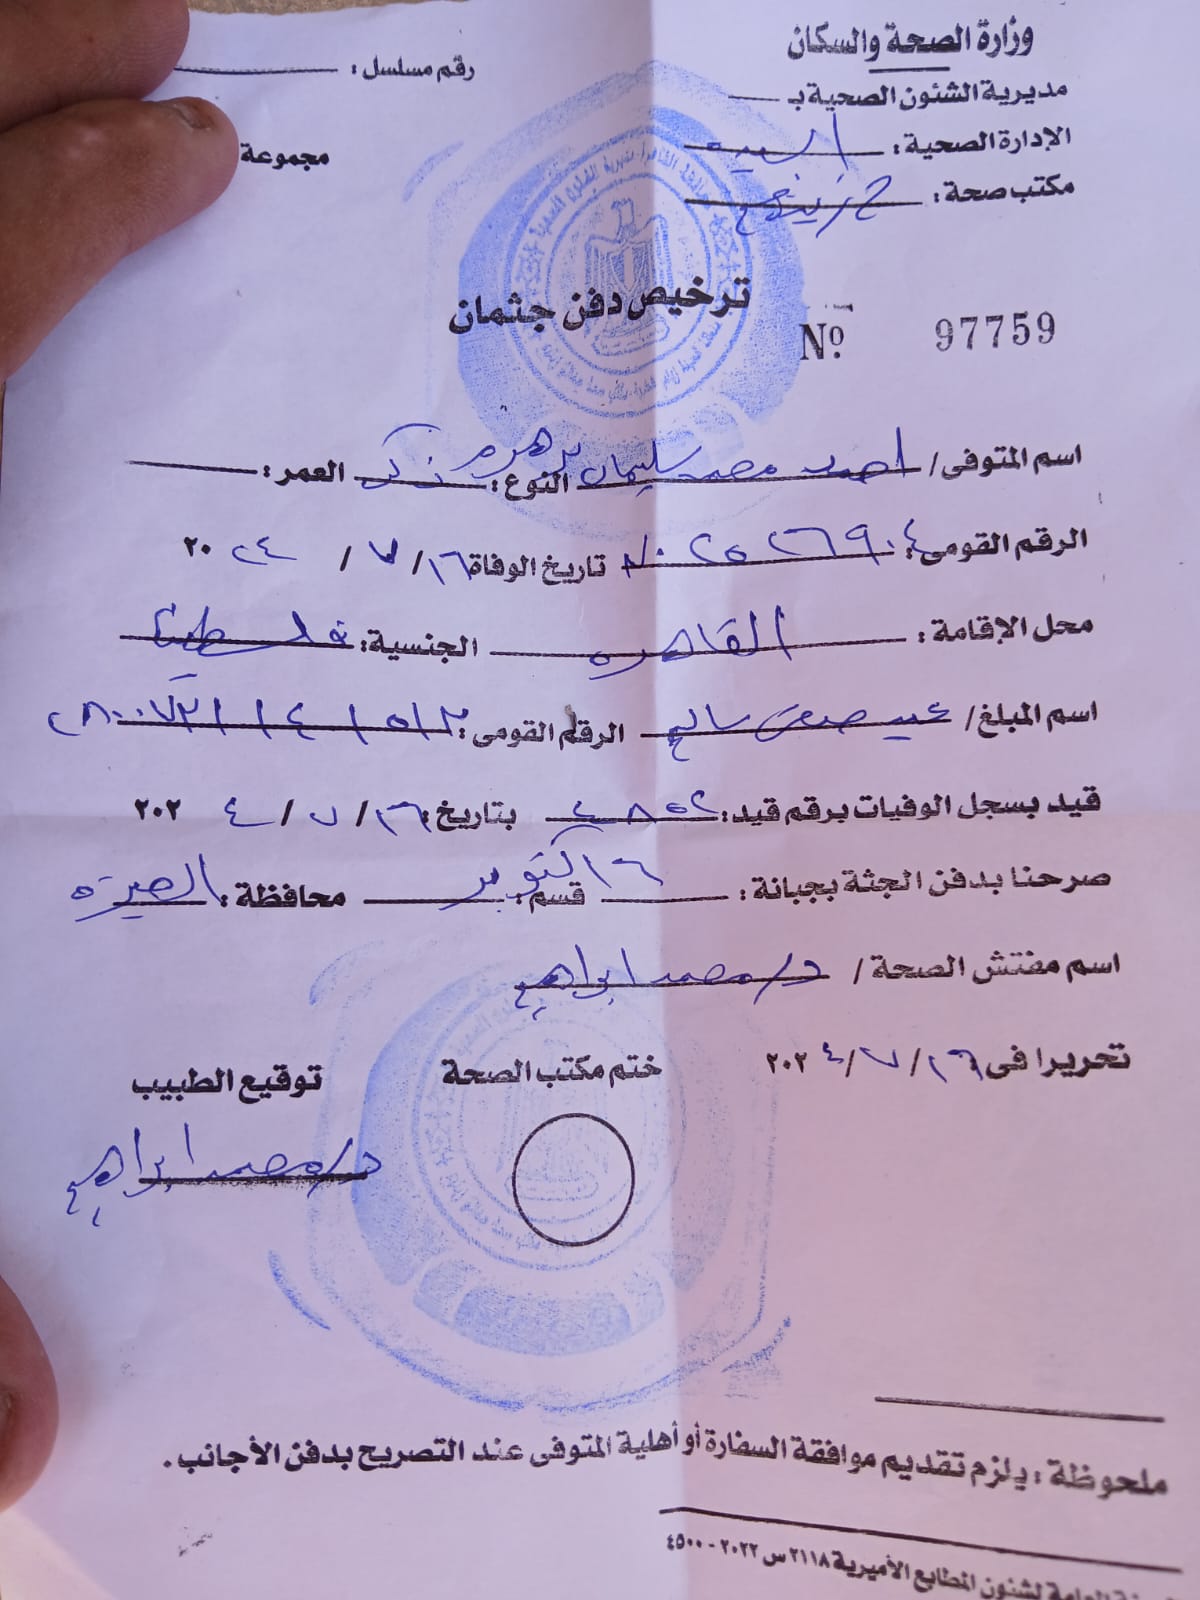 وزارة الصحة والسكان
رقم مسلسل :
مديرية الشئون الصحية بـ
مجموعة
الإدارة الصحية :
مكتب صحة : زينهم
ترخيص دفن جثمان
Nº 97759
اسم المتوفى / احمد محمد سليمان برهوم النوع : ذكر العمر :
الرقم القومى : تاريخ الوفاة ١٦ / ٧ / ٢٠٢٤
محل الإقامة : القاهرة الجنسية : فلسطين
اسم المبلغ / سالم الرقم القومى :
قيد بسجل الوفيات برقم قيد : بتاريخ : ١٦ / ٧ / ٢٠٢٤
صرحنا بدفن الجثة بجبانة : ٦ اكتوبر قسم : محافظة : الجيزه
اسم مفتش الصحة / د/ محمد ابراهيم
تحريرا فى ١٦ / ٧ / ٢٠٢٤
ختم مكتب الصحة
توقيع الطبيب
د/ محمد ابراهيم
ملحوظة : يلزم تقديم موافقة السفارة أو أهلية المتوفى عند التصريح بدفن الأجانب .
العامة لشئون المطابع الأميرية ٢١١٨ س ٢٠٢٢ - ٤٥٠٠